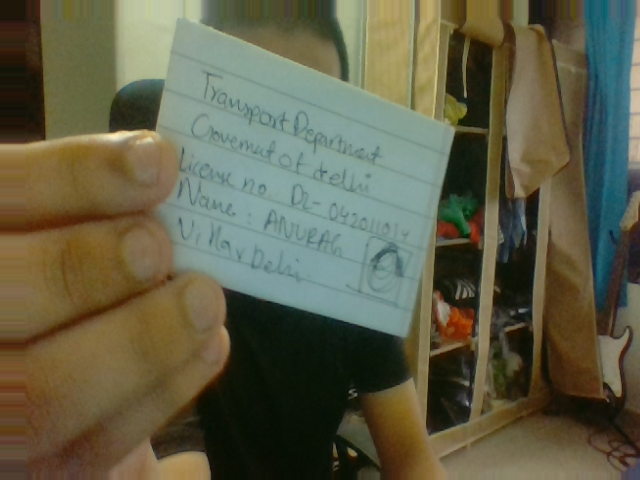 Transport Department
Goverment of delhi
License no. DL- 042011014
Name : ANURAG
Vihar Delhi